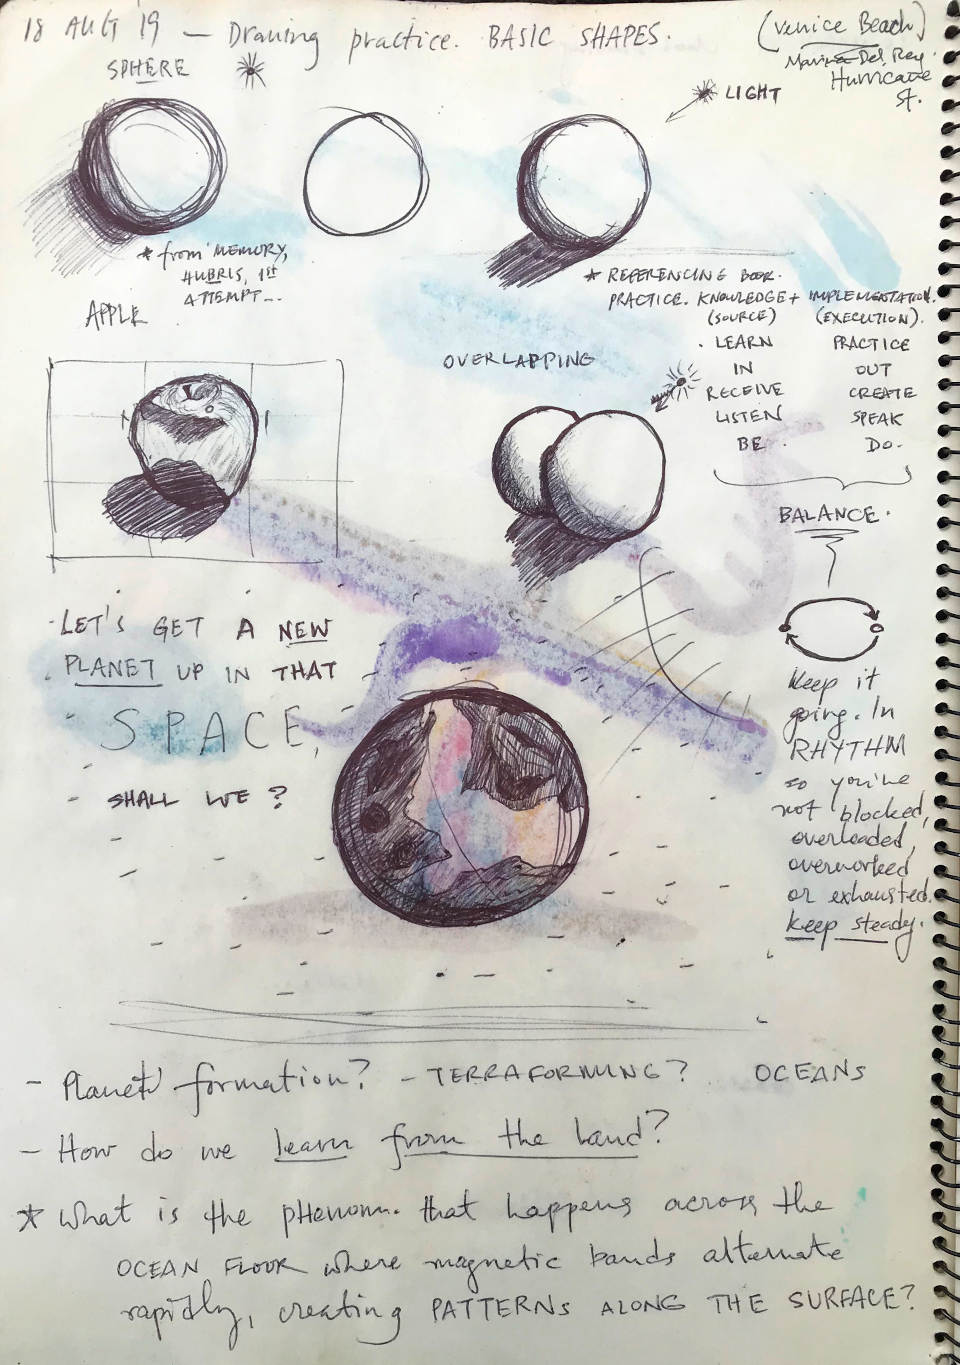 18 AUG '19 — Drawing practice. BASIC SHAPES.
(Venice Beach)
Marina Del Rey.
Hurricane
St.
SPHERE
LIGHT
* from MEMORY,
HUBRIS, 1st
ATTEMPT...
* REFERENCING BOOK.
PRACTICE. KNOWLEDGE + IMPLEMENTATION.
(SOURCE) (EXECUTION).
. LEARN PRACTICE
IN OUT
RECEIVE CREATE
LISTEN SPEAK
BE. DO.
BALANCE.
APPLE
OVERLAPPING
LET'S GET A NEW
PLANET UP IN THAT
SPACE,
SHALL WE?
Keep it
going. In
RHYTHM
so you're
not blocked,
overloaded,
overworked
or exhausted.
Keep steady.
- Planet formation? - TERRAFORMING? OCEANS
- How do we learn from the land?
* What is the PHenom. that happens across the
OCEAN FLOOR where magnetic bands alternate
rapidly, creating PATTERNS ALONG THE SURFACE?